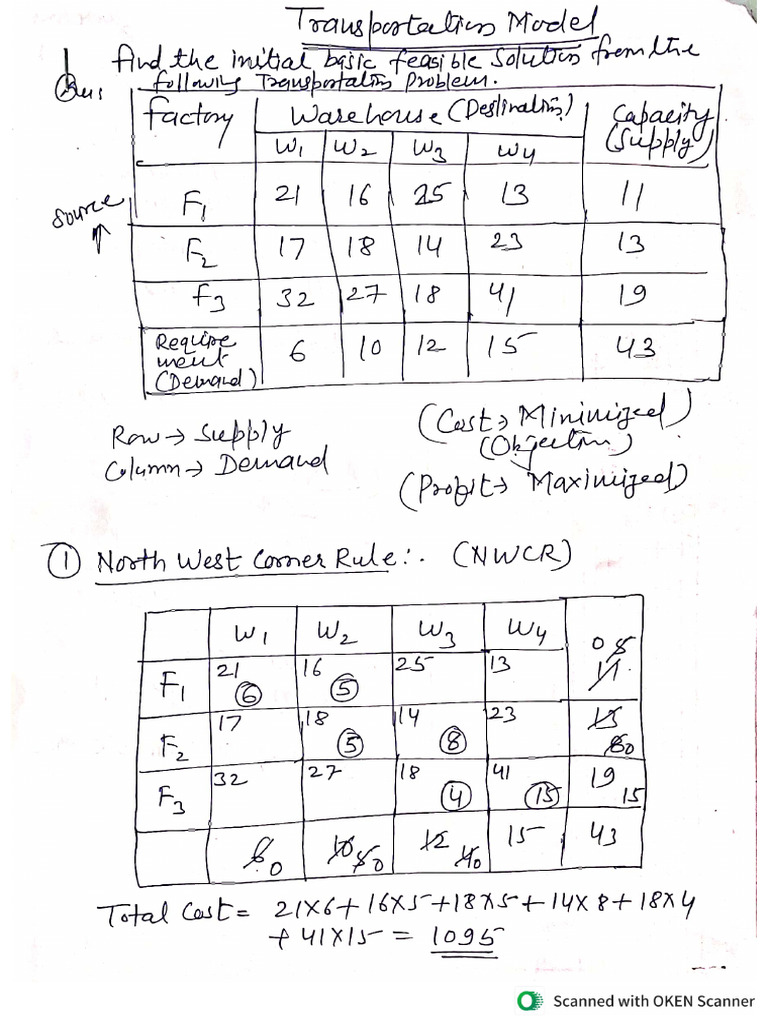 Transportation Model
Ques 1 Find the initial basic feasible Solution from the
following Transportation Problem.
Factory Warehouse (Destination) Capacity
W1 W2 W3 W4 (Supply)
Source → F1 21 16 25 13 11
F2 17 18 14 23 13
F3 32 27 18 41 19
Require
ment 6 10 12 15 43
(Demand)
Row → Supply (Cost → Minimized)
Column → Demand (Objection)
(Profit → Maximized)
① North West Corner Rule :- (NWCR)
W1 W2 W3 W4
F1 21 ⑥ 16 ⑤ 25 13 11 5 0
F2 17 18 ⑤ 14 ⑧ 23 13 8 0
F3 32 27 18 ④ 41 ⑮ 19 15
6 0 10 5 0 12 4 0 15 43
Total Cost = 21×6 + 16×5 + 18×5 + 14×8 + 18×4
+ 41×15 = 1095
Scanned with OKEN Scanner